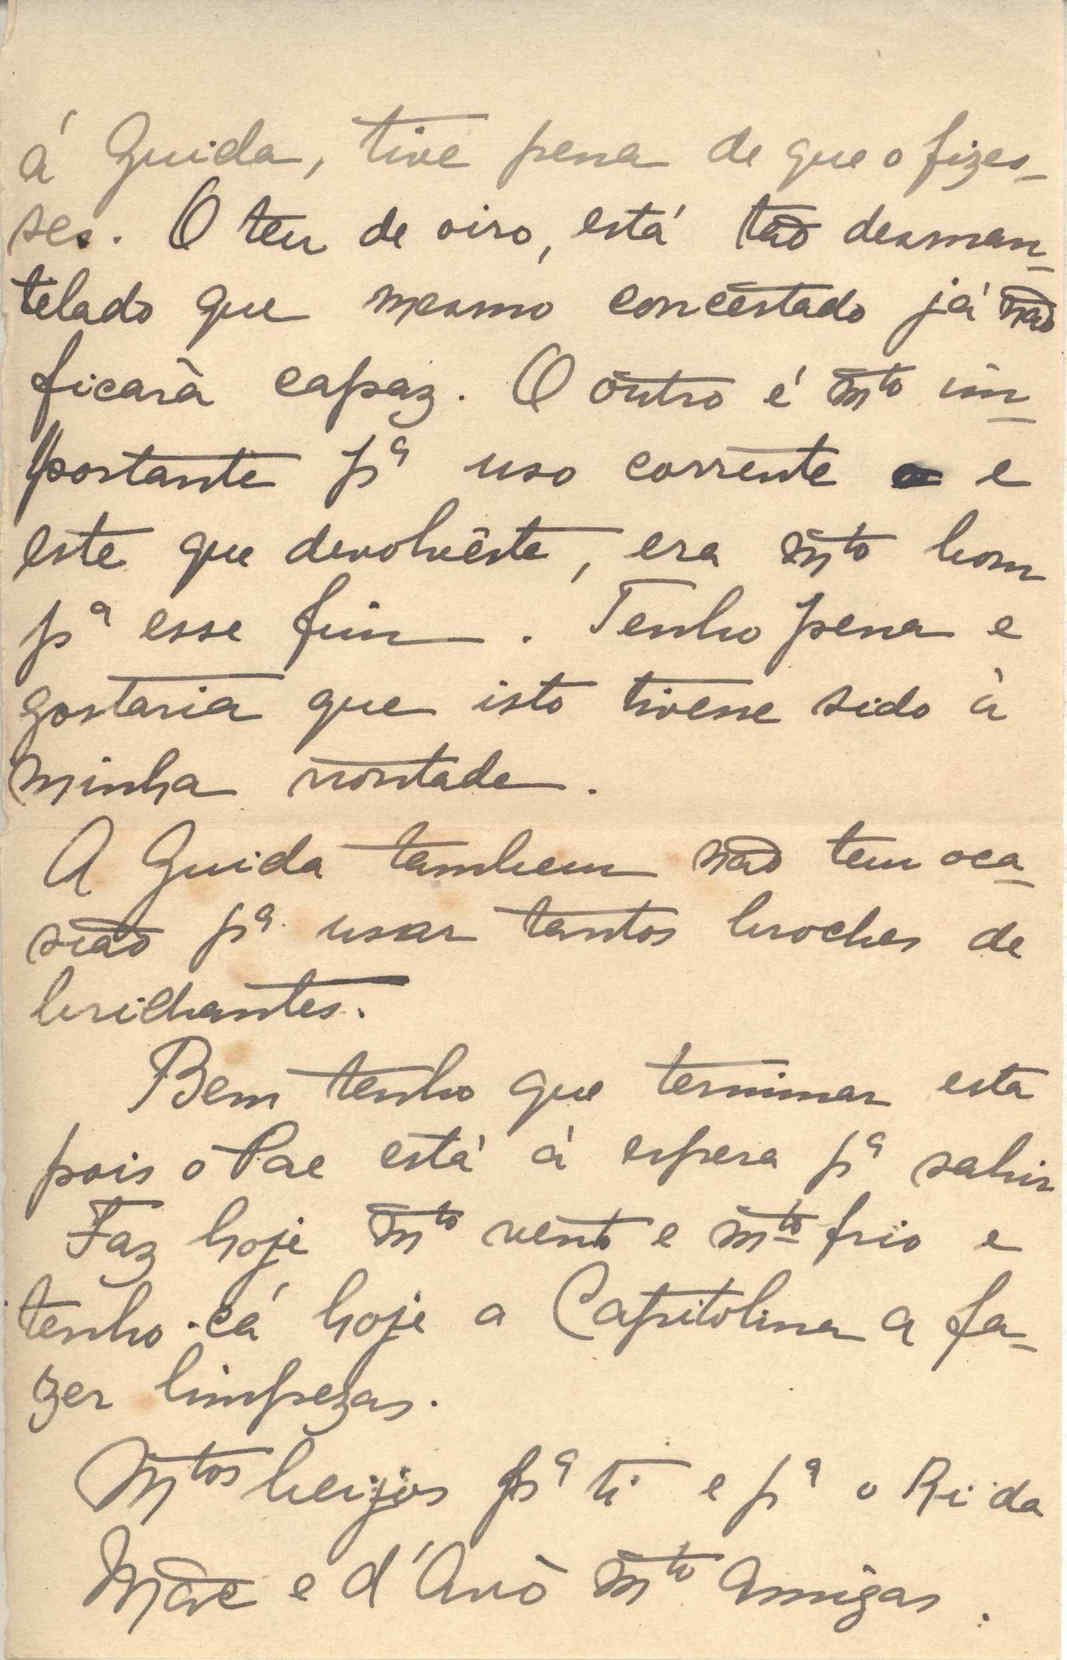 á Guida, tive pena de que o fizes-
ses. O teu de oiro, está tão desman-
telado que mesmo concertado já não
ficará capaz. O outro é mto im-
portante pª uso corrente e
este que devolvêste, era mto bom
pª esse fim. Tenho pena e
gostaria que isto tivesse sido à
minha vontade.
A Guida tambem não tem oca-
sião pª usar tantos broches de
brilhantes.
Bem tenho que terminar esta
pois o Pae está á espera pª sahir
Faz hoje mto vento e mto frio e
tenho cá hoje a Capitolina a fa-
zer limpezas.
Mtos beijos pª ti e pª o Ri da
Mãe e d'Avó mto Amigas.